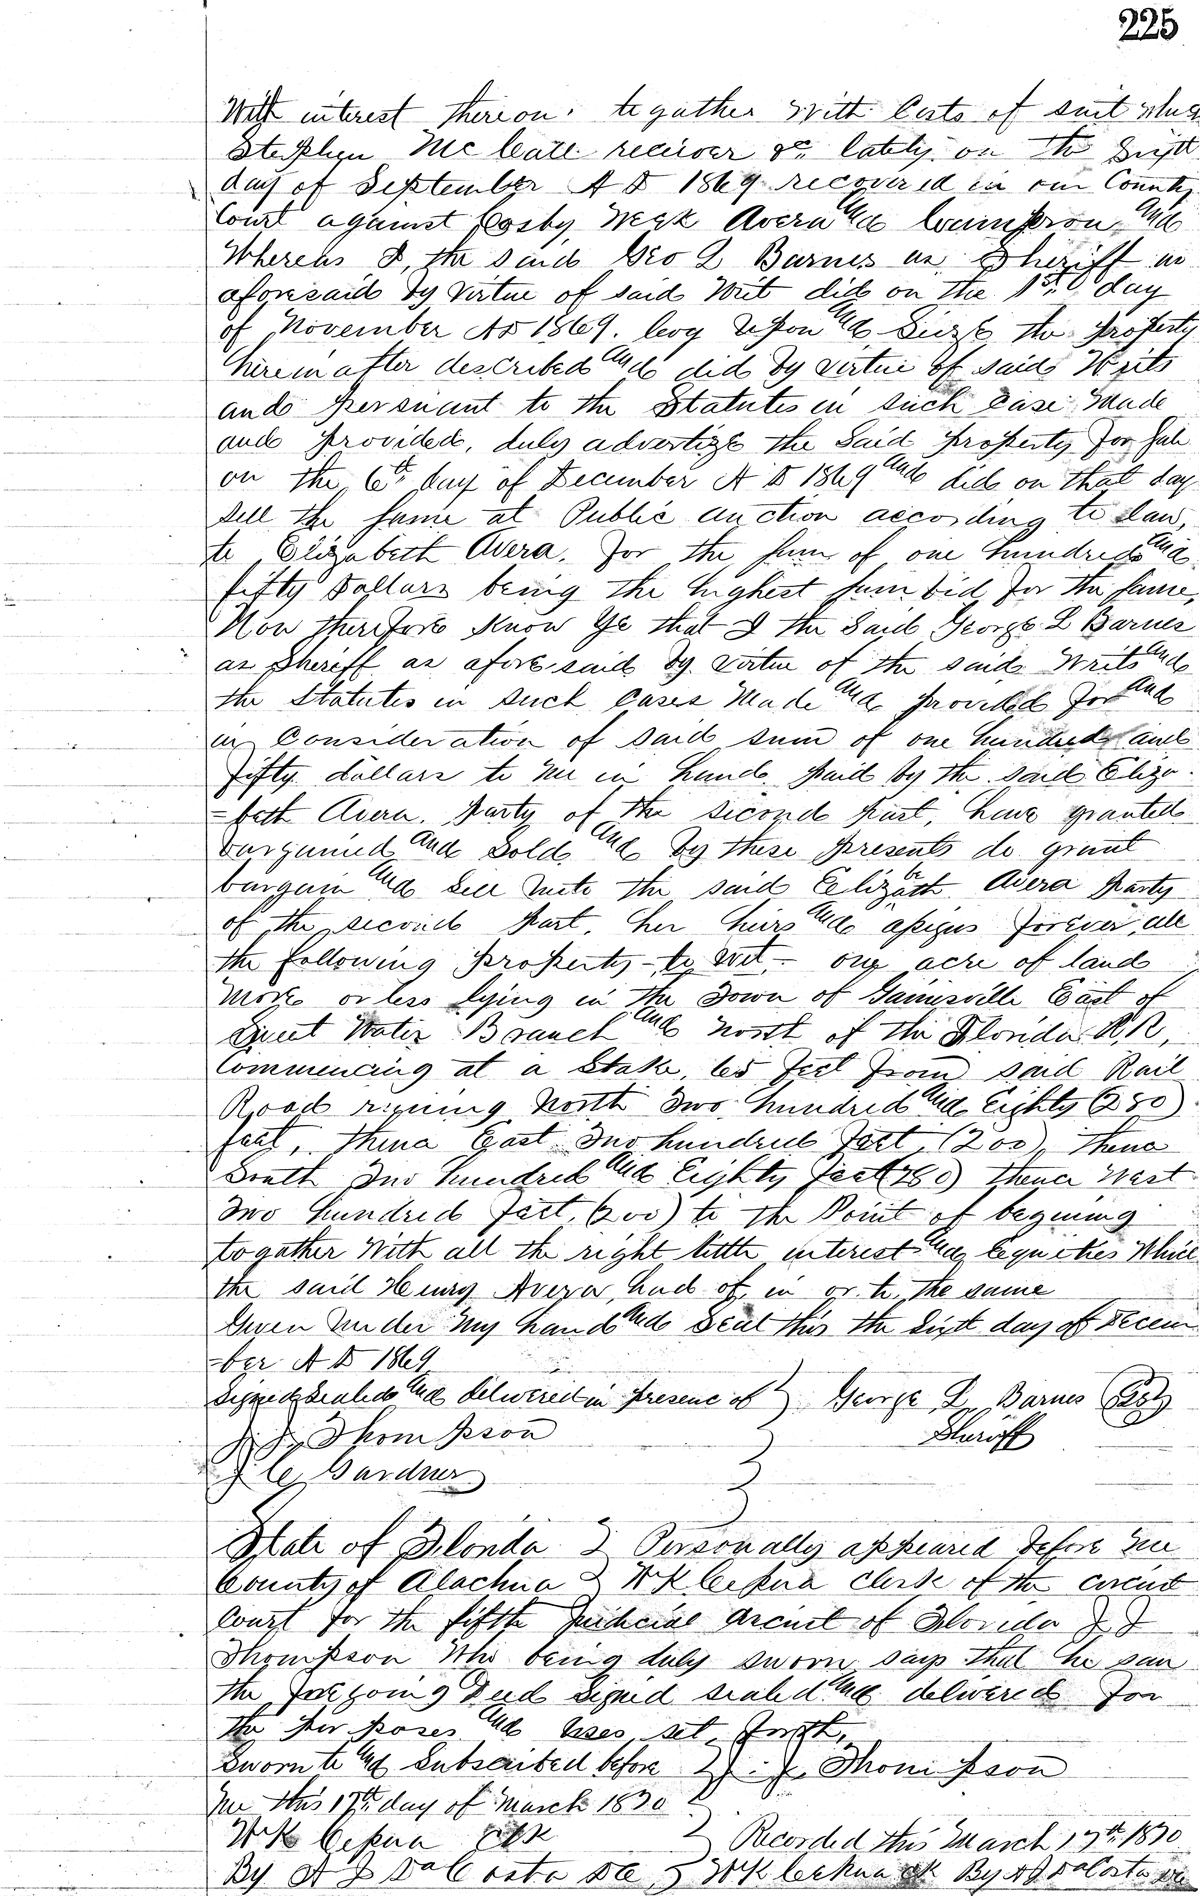 225
With interest thereon. togather With Costs of suit
Stephen McCall reciever &c lately on the Sixth
day of September A D 1869 recovered in our County
Court against Cosby Week Avera and and
Whereas I, the said Geo L Barnes as Sheriff as
aforesaid by virtue of said Writ did on the 1st day
of November AD 1869. levy upon and Sieze the property
herein after described and did by virtue of said Writs
and persuant to the Statutes in such Case Made
and provided, duly advertize the Said property for Sale
on the 6th day of December A D 1869 and did on that day
sell the same at Public auction according to law,
to Elizabeth Avera. for the sum of one hundred and
fifty Dollars being the highest sum bid for the same,
Now therefore Know Ye that I the Said George L Barnes
as Sheriff as afore said by virtue of the said Writs and
the Statutes in such Cases Made and provided for and
in Consideration of said sum of one hundred and
fifty dollars to Me in hand paid by the said Eliza
=beth Avera. party of the second part, have granted
bargained and Sold and by these presents do grant
bargain and Sell unto the said Elizabeth Avera party
of the second part, her heirs and assigns forever, all
the following property - to wit, - one acre of land
More or less lying in the Town of Gainisville East of
Sweet Water Branch and North of the Florida R, R,
Commencing at a Stake, 65 feet from said Rail
Road runing North Two hundred and Eighty (280)
feet, thence East Two hundred feet, (200), thence
South Two hundred and Eighty feet (280) thence West
Two hundred feet, (200) to the Point of begining
togather With all the right title interest and equities Which
the said Henry Avera, had of, in or to, the same
Given under My hand and Seal this the Sixth day of Decem
=ber A D 1869
Signed Sealed and delivered in presence of } George L. Barnes
J. J. Thompson Sheriff
J C Gardner
State of Florida } Personally appeared before me
County of Alachua } W K Cessna clerk of the circuit
Court for the fifth Judicial Circuit of Florida J J
Thompson Who being duly sworn says that he saw
the foregoing Deed Signed sealed and delivered for
the purposes and uses set forth,
Sworn to and Subscribed before } J. J. Thompson
me this 17th day of March 1870
W K Cessna Clk } Recorded this March 17th 1870
By A J DaCosta DC } W K Cessna Clk By A J DaCosta DC